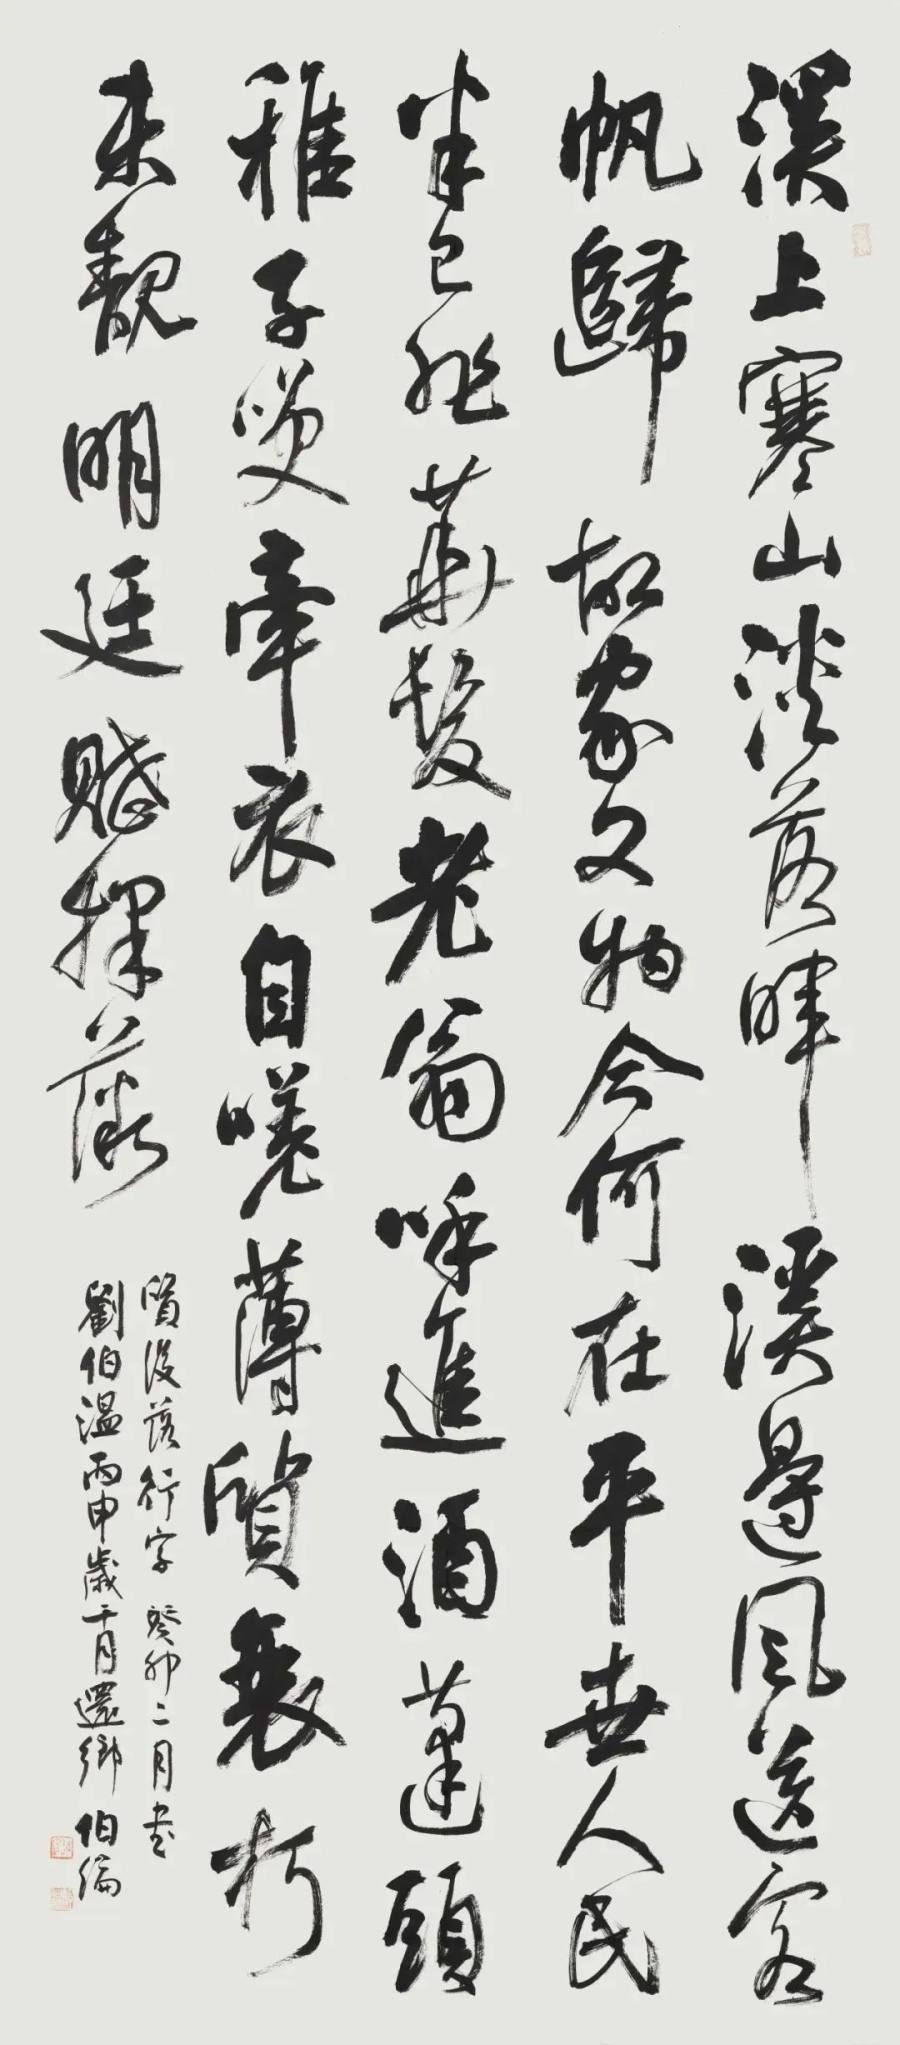 溪上寒山淡落暉溪邊風送客
帆歸故家文物今何在平世人民
半已非華髮老翁呼進酒蓬頭
稚子笑牽衣自嗟薄質衰朽
未覩明廷賦採薇
質後落行字 癸卯二月書
劉伯溫丙申歲十月還鄉 伯